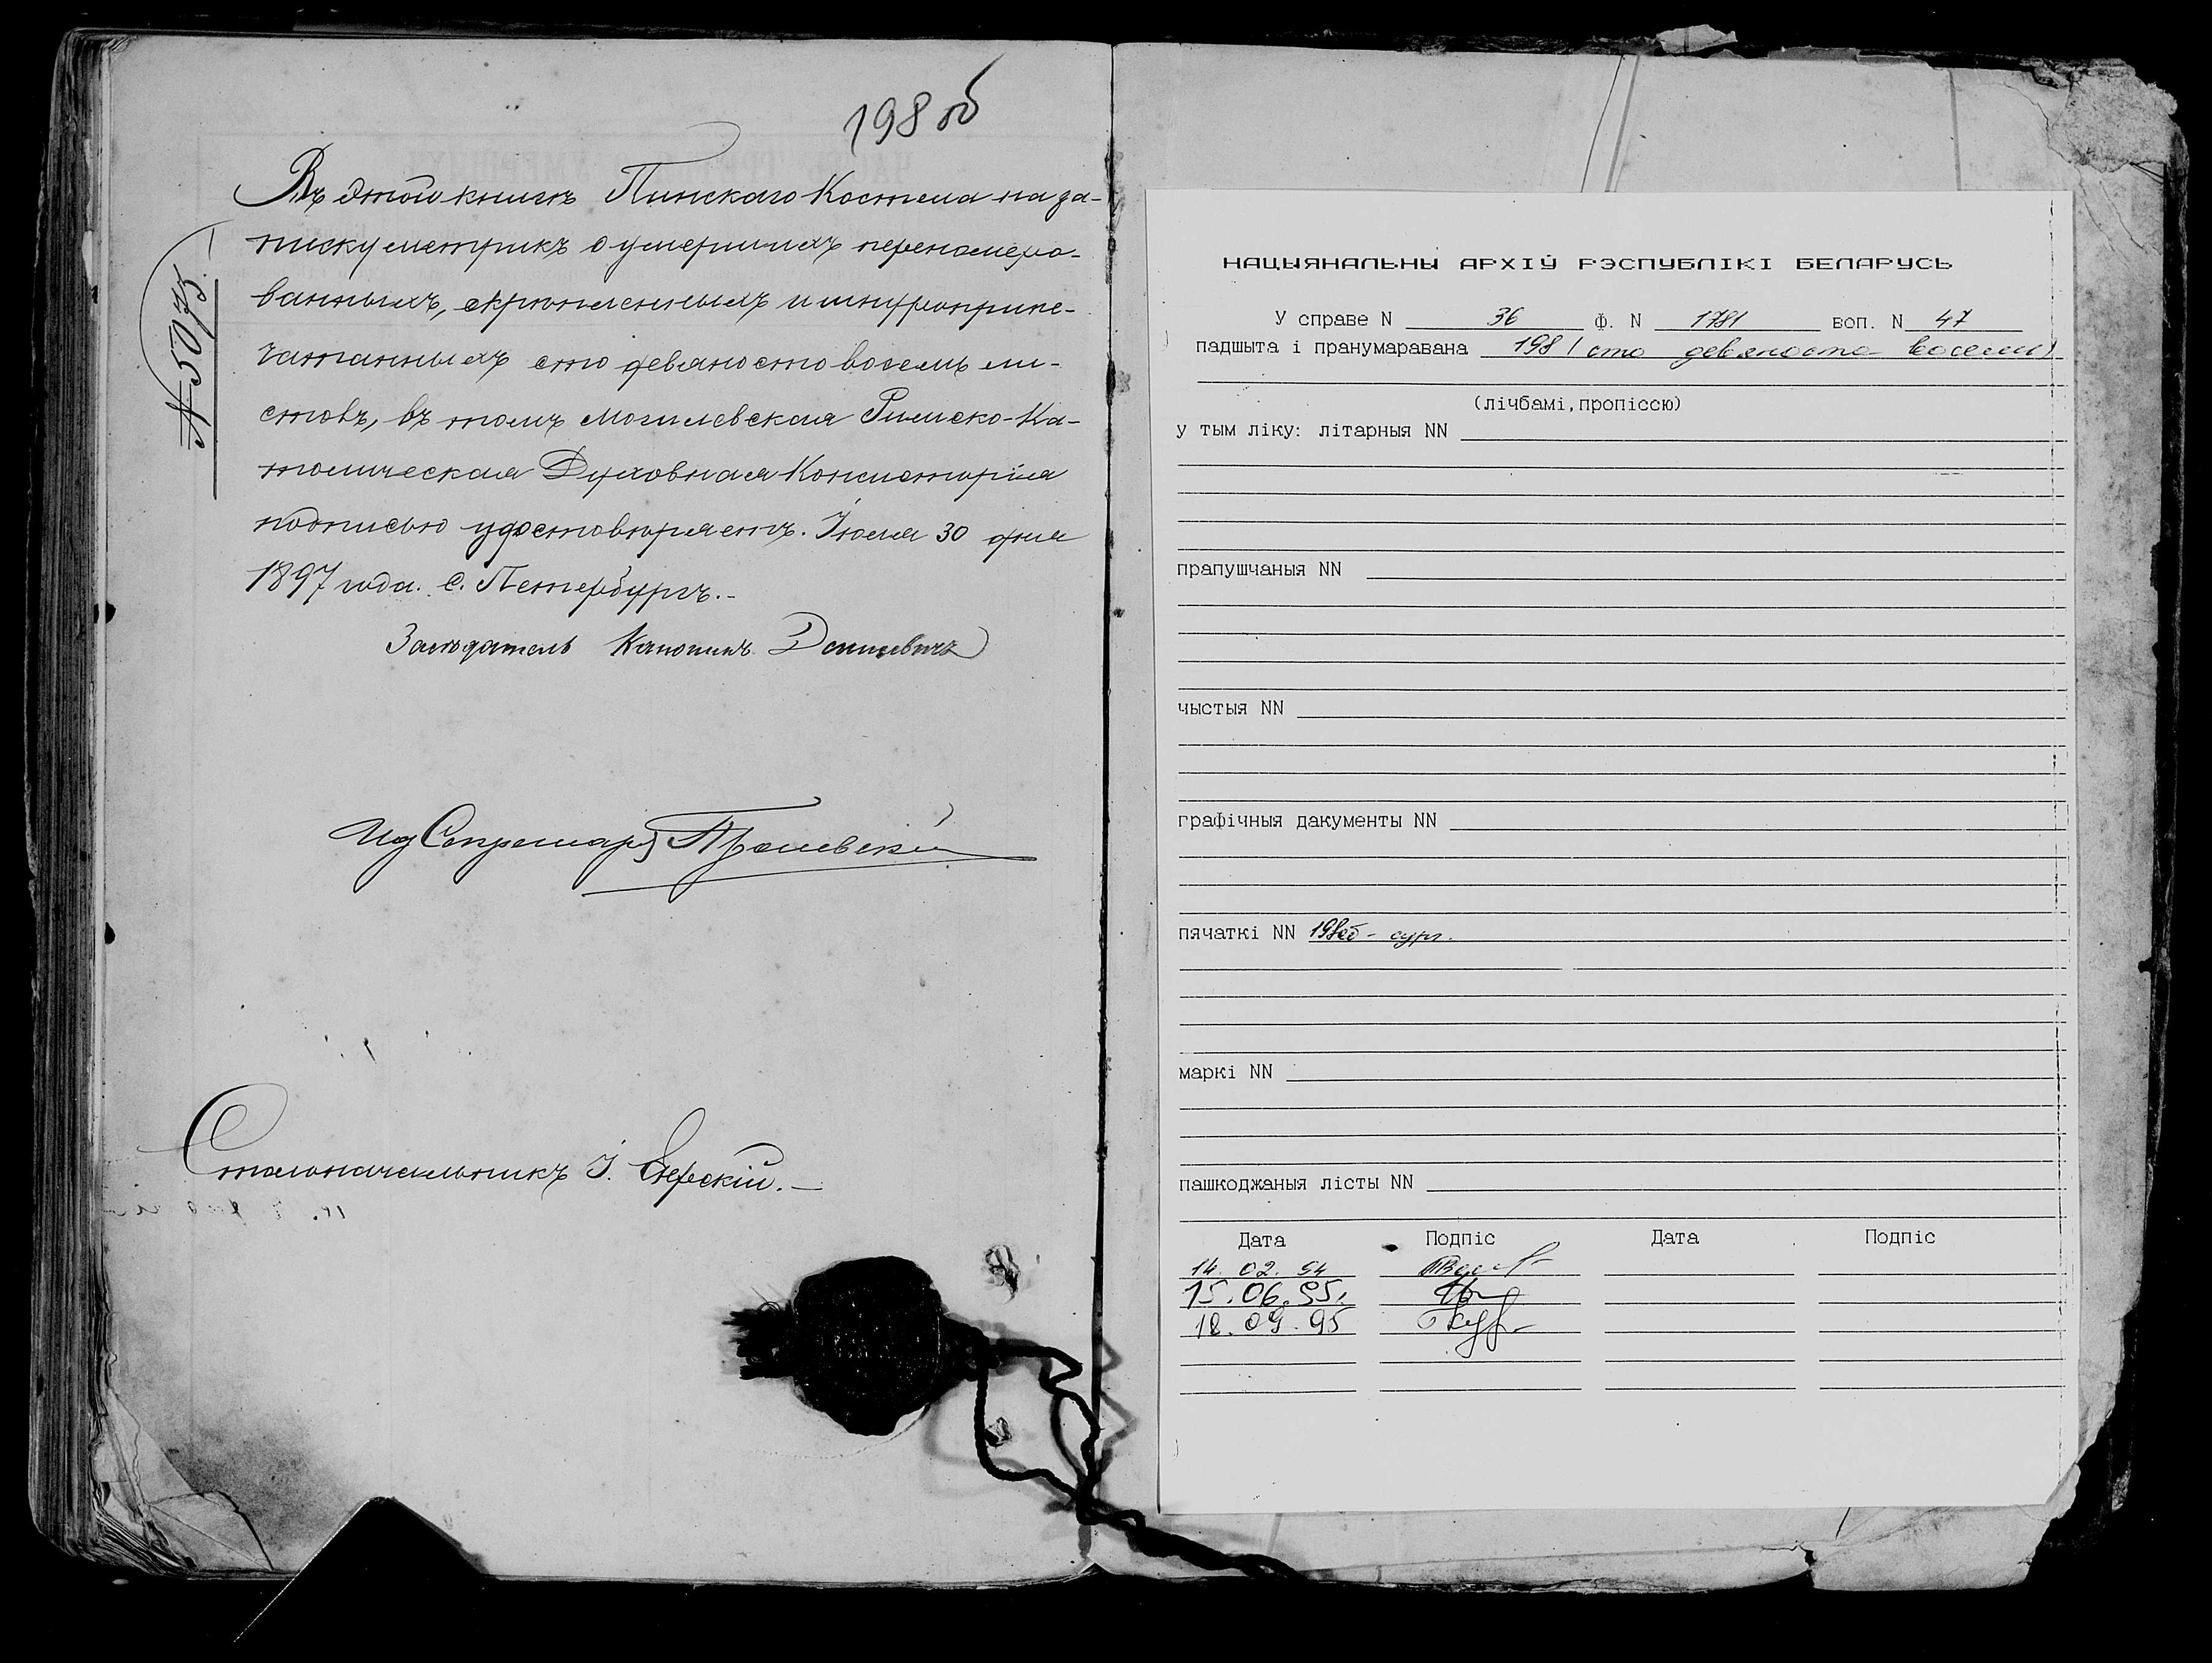 198 об
Въ этой книгѣ Пинскаго Костела на за-
писку метрикъ о умершихъ перенумеро-
ванныхъ, скрѣпленныхъ и шнуроприпе-
чатанныхъ сто девяносто восемь ли-
стовъ, въ томъ Могилевская Римско-Ка-
толическая Духовная Консисторія
подписью удостовѣряетъ. Іюля 30 дня
1897 года. С. Петербургъ.-
№ 5075.
Засѣдатель Каноникъ
Ид Секретаря
Столоначальникъ І.
НАЦЫЯНАЛЬНЫ АРХІЎ РЭСПУБЛІКІ БЕЛАРУСЬ
У справе N 36 Ф. N 1781 воп. N 47
падшыта і пранумаравана 198 (сто девяносто восемь)
(лічбамі,пропіссю)
у тым ліку: літарныя NN
прапушчаныя NN
чыстыя NN
графічныя дакументы NN
пячаткі NN 198об - сург.
маркі NN
пашкоджаныя лісты NN
Дата Подпіс Дата Подпіс
14. 02. 94
15.06.95.
18.09.95